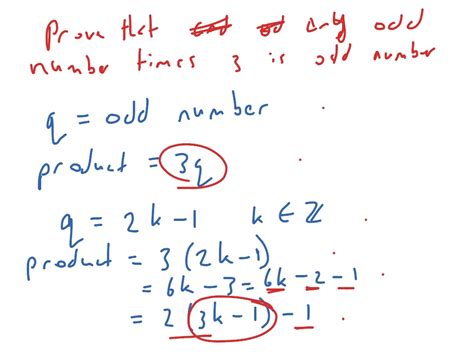 Prove that any odd
number times 3 is odd number
q = odd number
product = 3q
q = 2k-1 k ∈ ℤ
product = 3(2k-1)
= 6k - 3 = 6k - 2 - 1
= 2(3k-1) - 1